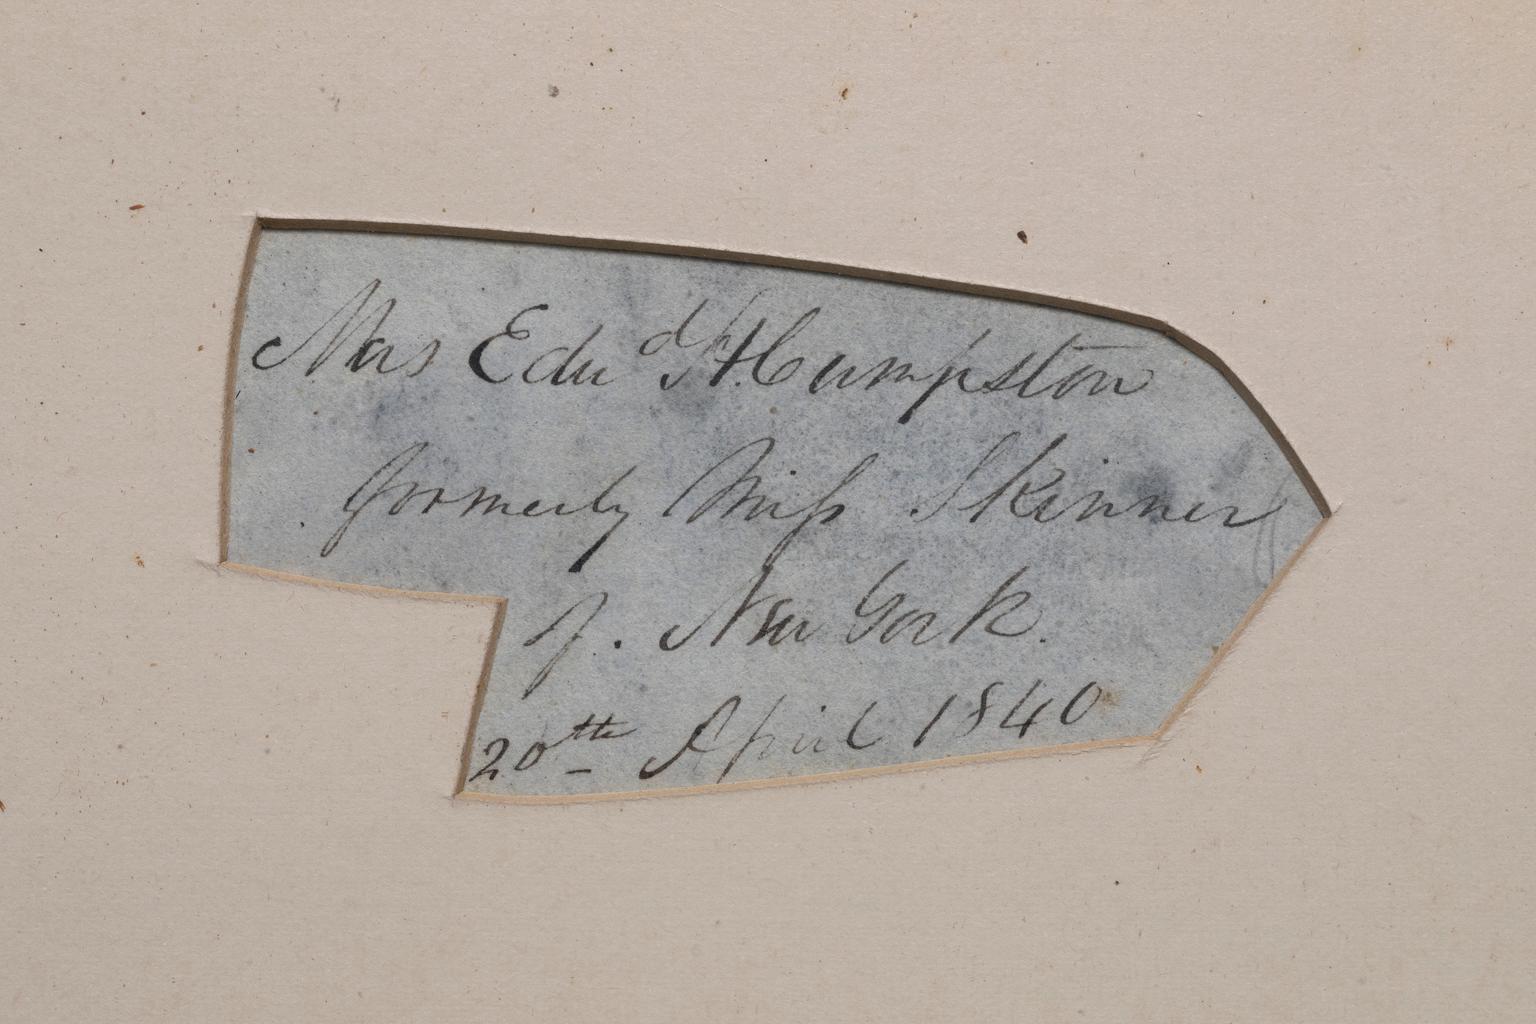 Mrs Edwd Humpston
formerly Miss Skinner
of. New York.
20th April 1840